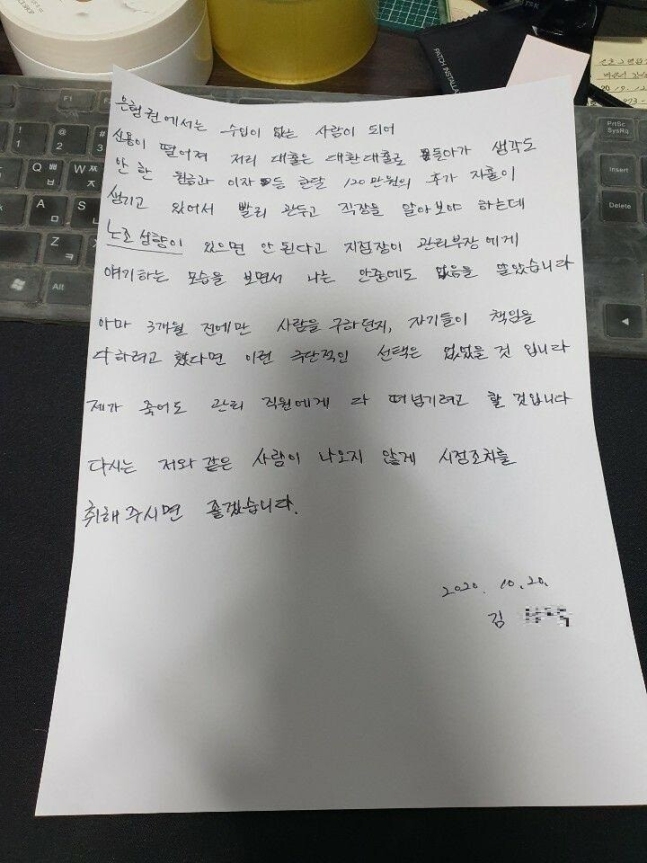 은행권에서는 수입이 없는 사람이 되어
신용이 떨어져 저리 대출은 대환대출로 돌아가 생각도
안 한 원금과 이자 등 한달 120만원의 추가 지출이
생기고 있어서 빨리 관두고 직장을 알아보야 하는데
노조 성향이 있으면 안된다고 지점장이 관리부장에게
얘기하는 모습을 보면서 나는 안중에도 없음을 알았습니다
아마 3개월 전에만 사람을 구하던지, 자기들이 책임을
다하려고 했다면 이런 극단적인 선택은 없었을 것 입니다
제가 죽어도 관리 직원에게 다 떠넘기려고 할 것입니다
다시는 저와 같은 사람이 나오지 않게 시정조치를
취해 주시면 좋겠습니다.
2020. 10. 20.
김
F1
PrtSc
SysRq
Insert
Delete
Alt
PATCH INSTALLA